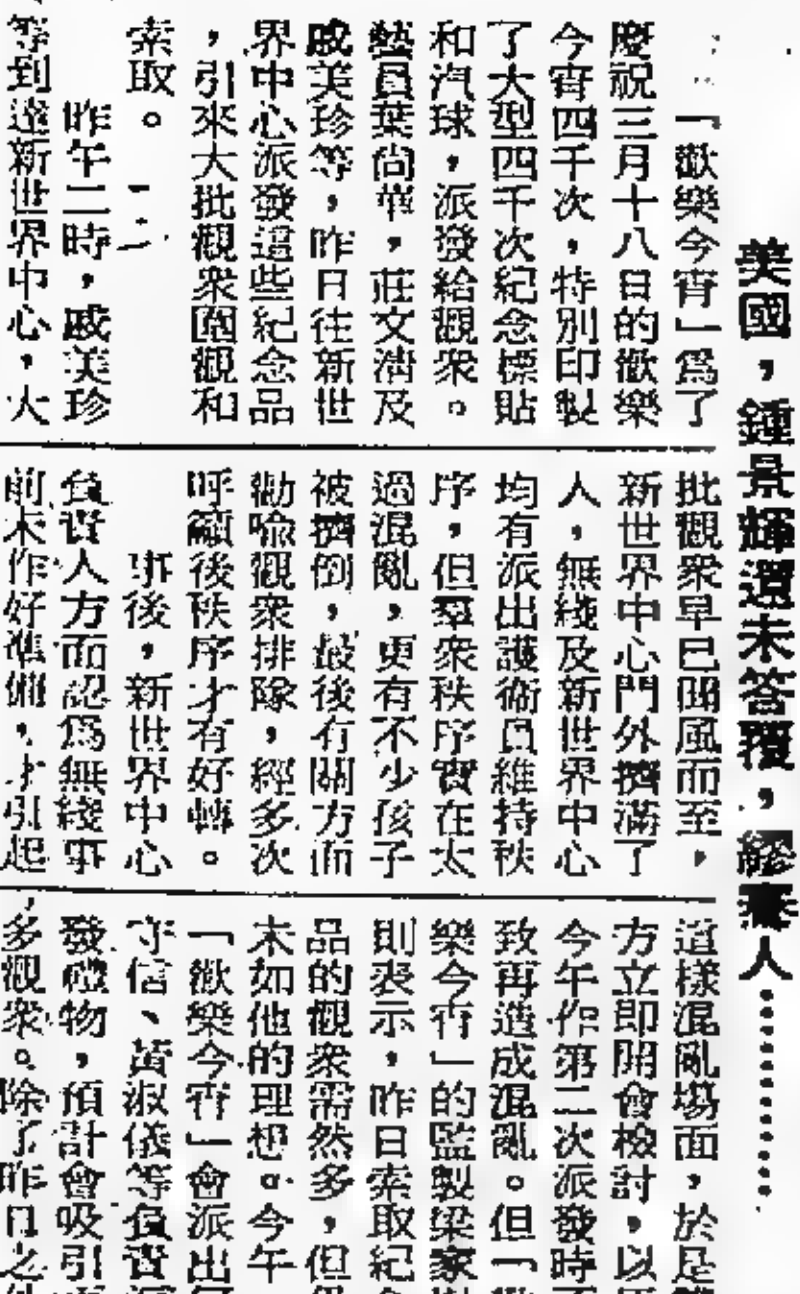 美國，鍾景輝還未答覆，繆騫人…………
「歡樂今宵」爲了
慶祝三月十八日的歡樂
今宵四千次，特別印製
了大型四千次紀念標貼
和汽球，派發給觀衆。
藝員葉尙華，莊文淸及
戚美珍等，昨日往新世
界中心派發這些紀念品
，引來大批觀衆圍觀和
索取。
昨午二時，戚美珍
等到達新世界中心，大
批觀衆早已聞風而至，
新世界中心門外擠滿了
人，無綫及新世界中心
均有派出護衞員維持秩
序，但羣衆秩序實在太
過混亂，更有不少孩子
被擠倒，最後有關方面
勸喩觀衆排隊，經多次
呼籲後秩序才有好轉。
事後，新世界中心
負責人方面認爲無綫事
前未作好準備，才引起
這樣混亂場面，於是
方立即開會檢討，以
今午作第二次派發時
致再造成混亂。但「
樂今宵」的監製梁家
則表示，昨日索取紀
品的觀衆需然多，但
未如他的理想。今午
「歡樂今宵」會派出
守信、黃淑儀等負責
發禮物，預計會吸引
多觀衆。除了昨日之